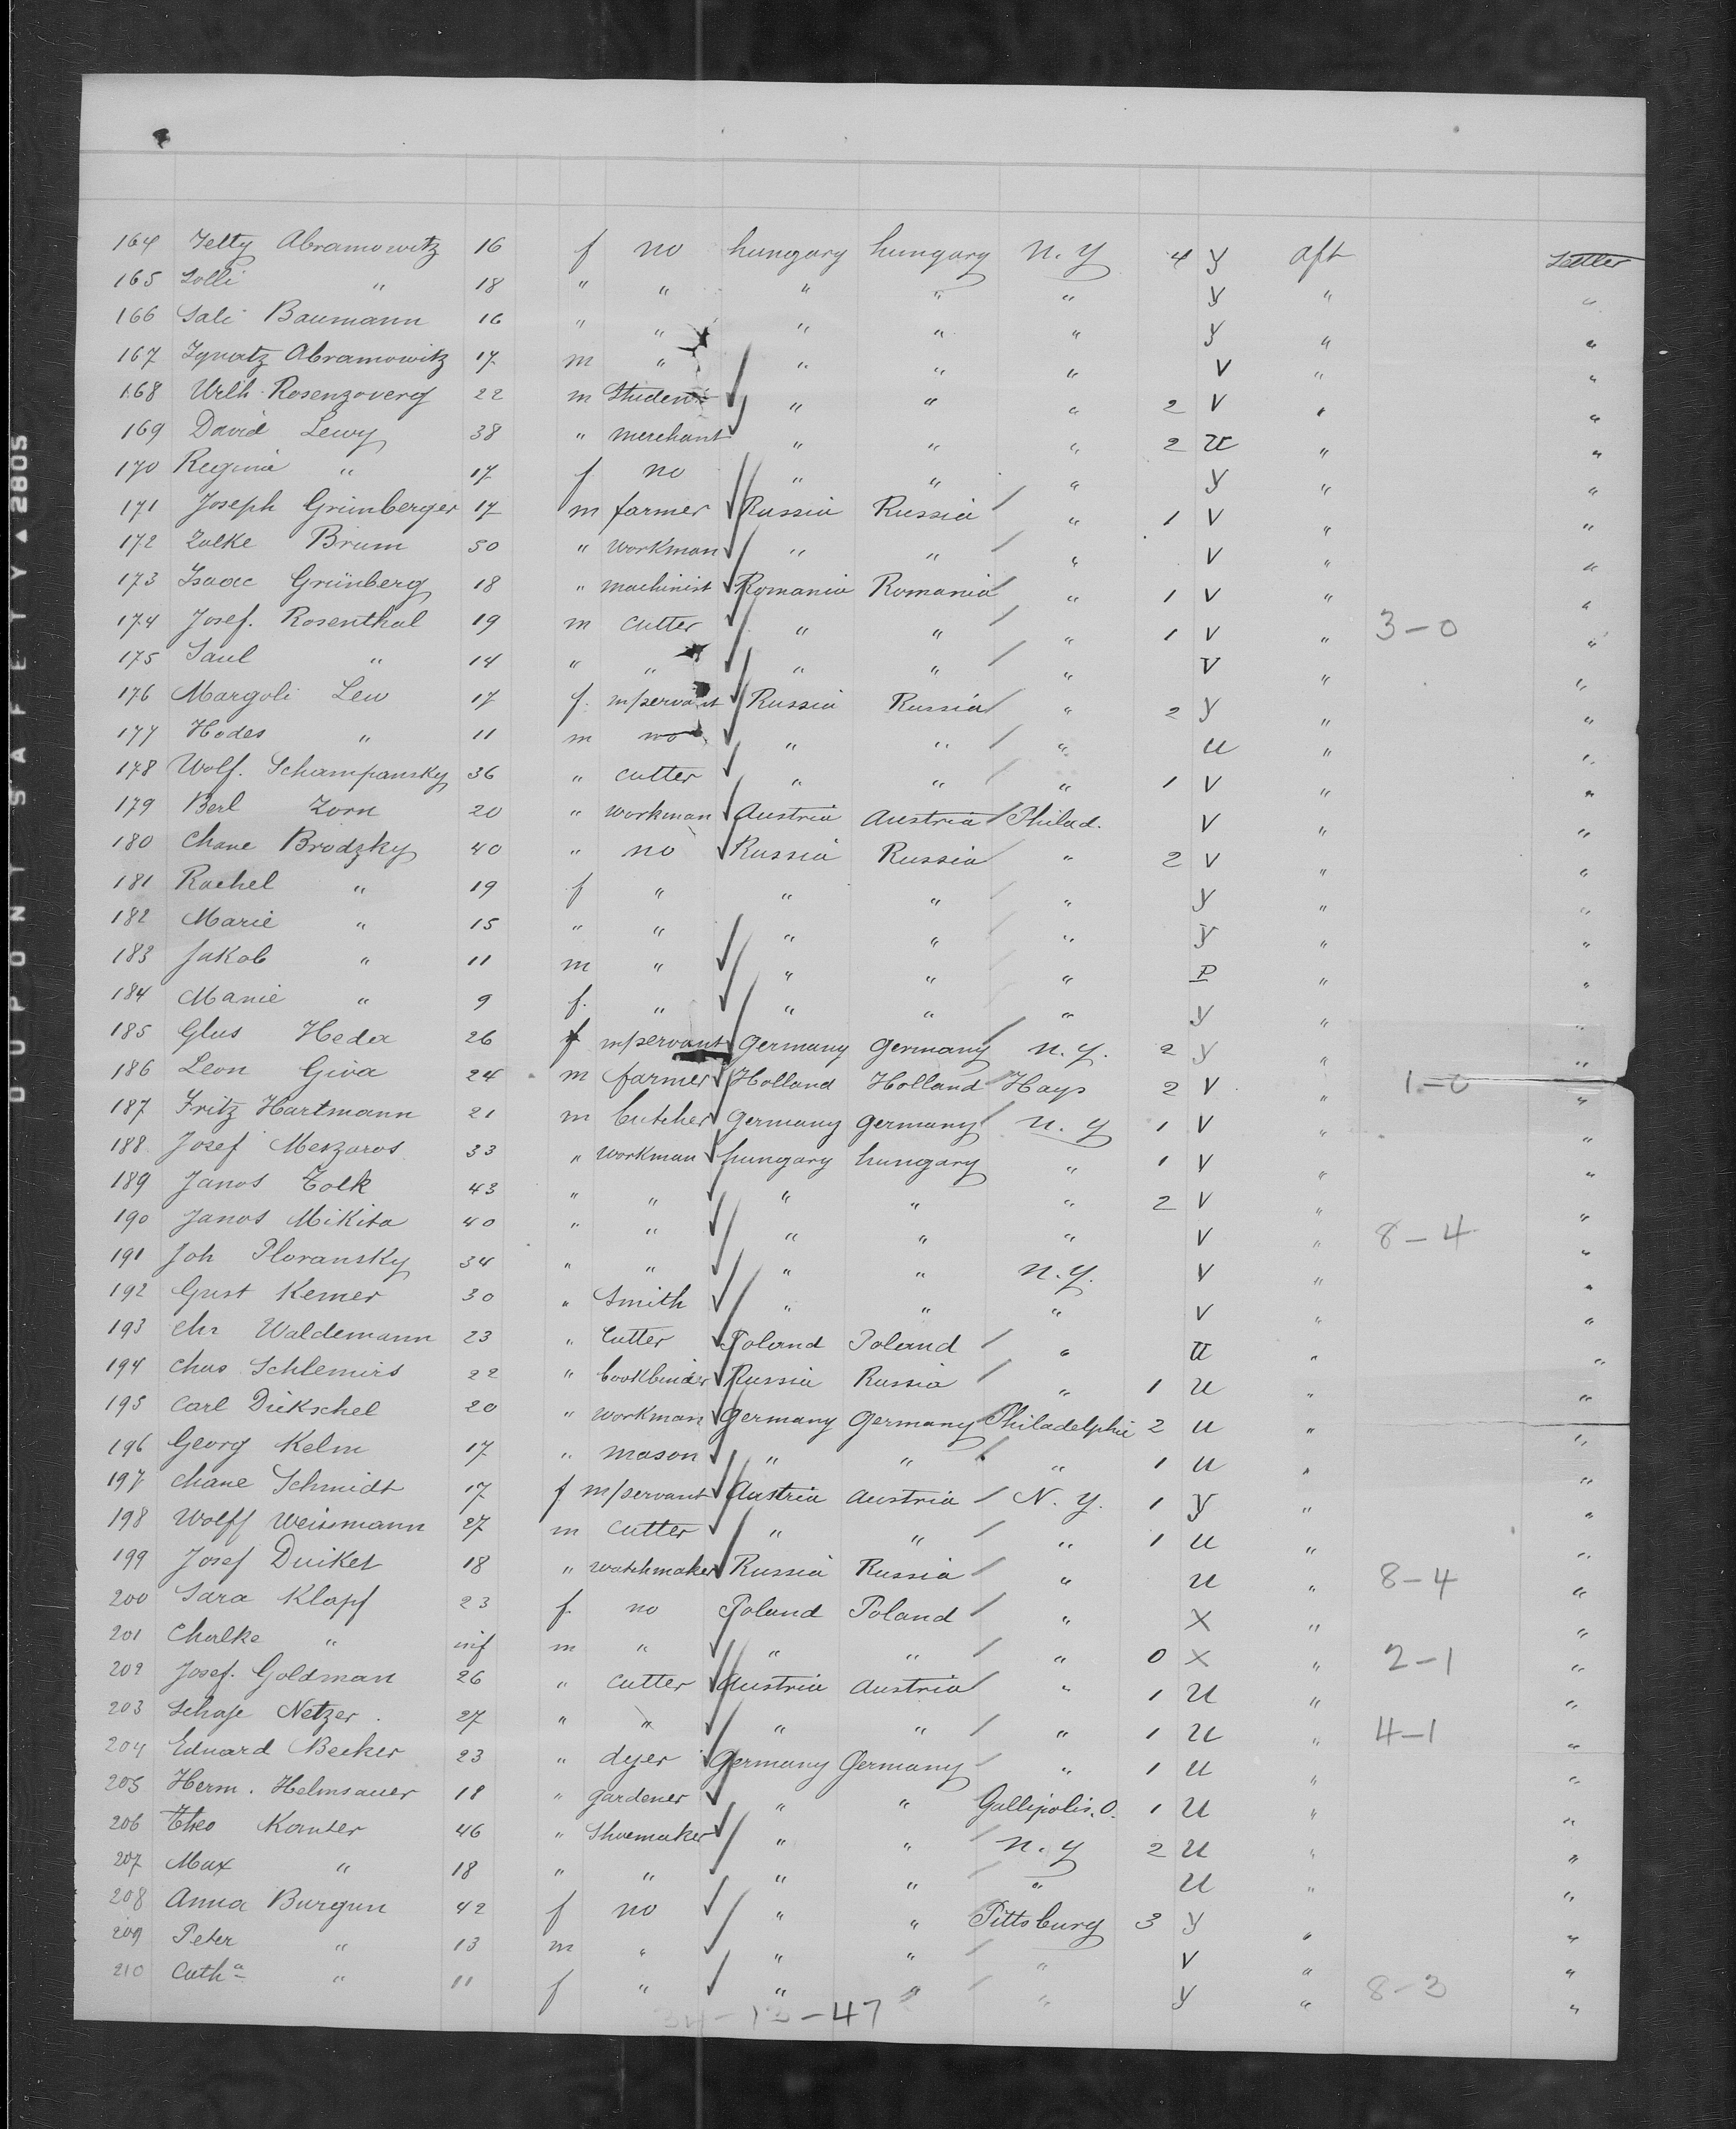 164 Jetty Abramowitz 16 f no hungary hungary N. Y 4 y aft Settler
165 Lolli " 18 " " " " " y " "
166 Sali Baumann 16 " " " " " y " "
167 Ignatz Abramowitz 17 m " " " " V " "
168 Wilh. Rosenzverg 22 m Student " " " 2 V " "
169 David Lewy 38 " merchant " " " 2 U " "
170 Regina " 17 f no " " " y " "
171 Joseph Grünberger 17 m farmer Russia Russia " 1 V " "
172 Zalke Brum 50 " workman " " " V " "
173 Isaac Grünberg 18 " machinist Romania Romania " 1 V " "
174 Josef. Rosenthal 19 m cutter " " " 1 V " 3-0 "
175 Saul " 14 " " " " " V " "
176 Margoli Lew 17 f. m/servant Russia Russia " 2 y " "
177 Hodes " 11 m no " " " U " "
178 Wolf. Schampansky 36 " cutter " " " 1 V " "
179 Berl Zorn 20 " workman Austria Austria Philad. V " "
180 Chane Brodzky 40 " no Russia Russia " 2 V " "
181 Rachel " 19 f " " " " y " "
182 Marie " 15 " " " " " y " "
183 Jakob " 11 m " " " " P " "
184 Manie " 9 f. " " " " y " "
185 Glus Heda 26 f m/servant Germany Germany N. Y. 2 y " "
186 Leon Giva 24 m farmer Holland Holland Hays 2 V " 1-0 "
187 Fritz Hartmann 21 m butcher Germany Germany N. Y 1 V " "
188 Josef Meszaros 33 " workman hungary hungary " 1 V " "
189 Janos Tolk 43 " " " " " 2 V " "
190 Janos Mikita 40 " " " " " V " 8-4 "
191 Joh Ploransky 34 " " " " N. Y. V " "
192 Gust Kemer 30 " Smith " " " V " "
193 Chr Waldemann 23 " Cutter Poland Poland " U " "
194 Chas Schlemirs 22 " bookbinder Russia Russia " 1 U " "
195 Carl Dikschel 20 " workman Germany Germany Philadelphie 2 U " "
196 Georg Kelm 17 " mason " " " 1 U " "
197 Chane Schmidt 17 f m/servant Austria Austria N. Y. 1 y " "
198 Wolff Weissmann 27 m cutter " " " 1 U " "
199 Josef Duiket 18 " watchmaker Russia Russia " U " 8-4 "
200 Sara Klapf 23 f. no Poland Poland " X " "
201 Chalke " inf m " " " " 0 X " 2-1 "
202 Josef. Goldman 26 " cutter Austria Austria " 1 U " "
203 Schaje Netzer. 27 " " " " " 1 U " 4-1 "
204 Eduard Becker 23 " dyer Germany Germany " 1 U " "
205 Herm. Helmsauer 18 " gardener " " Gallipolis. O. 1 U " "
206 Theo Kanter 46 " Shoemaker " " N. Y 2 U " "
207 Max " 18 " " " " " U " "
208 Anna Burgun 42 f no " " Pittsburg 3 y " "
209 Peter " 13 m " " " " V " "
210 Cath<sup>a</sup> " 11 f " " " " y " 8-3 "
34-13-47
DUPONT SAFETY ▲ 2805